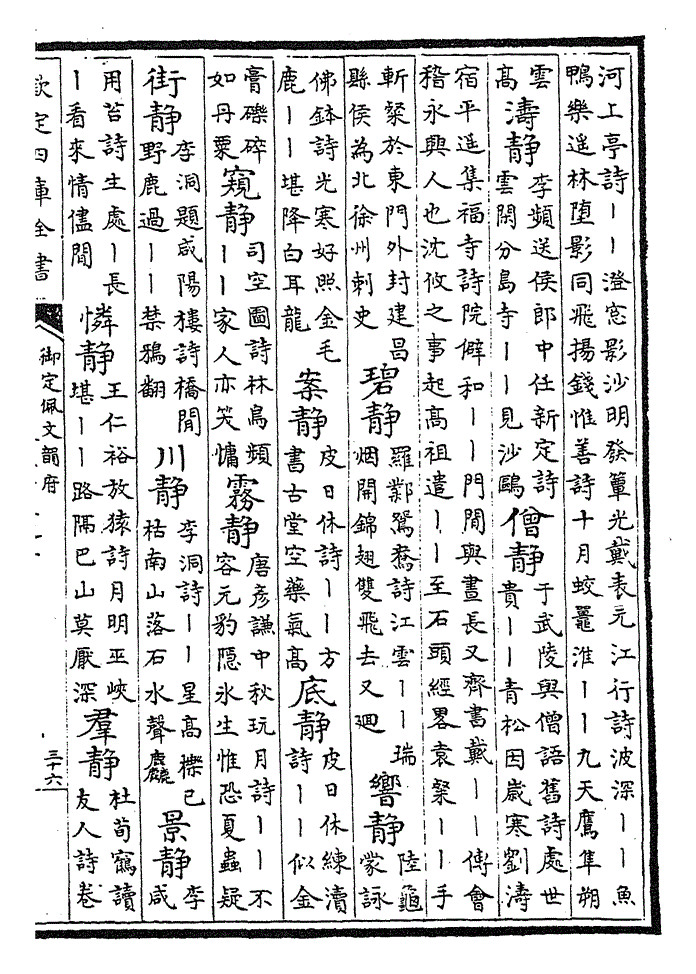 河上亭詩〡〡澄窓影沙明發簟光戴表元江行詩波深〡〡魚
鴨樂遥林堕影同飛揚錢惟善詩十月蛟鼉淮〡〡九天鷹隼朔
雲
高
濤静
李頻送侯郎中任新定詩
雲閑分島寺〡〡見沙鷗
僧静
于武陵與僧語舊詩處世
貴〡〡青松因歳寒劉濤
宿平遥集福寺詩院僻和〡〡門閒與晝長又齊書戴〡〡傳會
稽永興人也沈攸之事起高祖遣〡〡至石頭經畧袁粲〡〡手
斬粲於東門外封建昌
縣侯為北徐州刺史
碧静
羅鄴鴛鴦詩江雲〡〡瑞
烟開錦翅雙飛去又廻
響静
陸龜
蒙詠
佛鉢詩光寒好照金毛
鹿〡〡堪降白耳龍
案静
皮日休詩〡〡方
書古堂空藥氣高
底静
皮日休練瀆
詩〡〡似金
膏礫碎
如丹粟
窺静
司空圖詩林鳥頻
〡〡家人亦笑慵
霧静
唐彦謙中秋玩月詩〡〡不
容元豹隠氷生惟恐夏蟲疑
街静
李洞題咸陽樓詩橋閒
野鹿過〡〡禁鴉翻
川静
李洞詩〡〡星高櫟已
枯南山落石水聲麤
景静
李
咸
用苔詩生處〡長
〡看來情儘閒
憐静
王仁裕放猿詩月明巫峽
堪〡〡路隔巴山莫厭深
羣静
杜荀鶴讀
友人詩卷
欽定四庫全書
御定佩文韻府
三十六